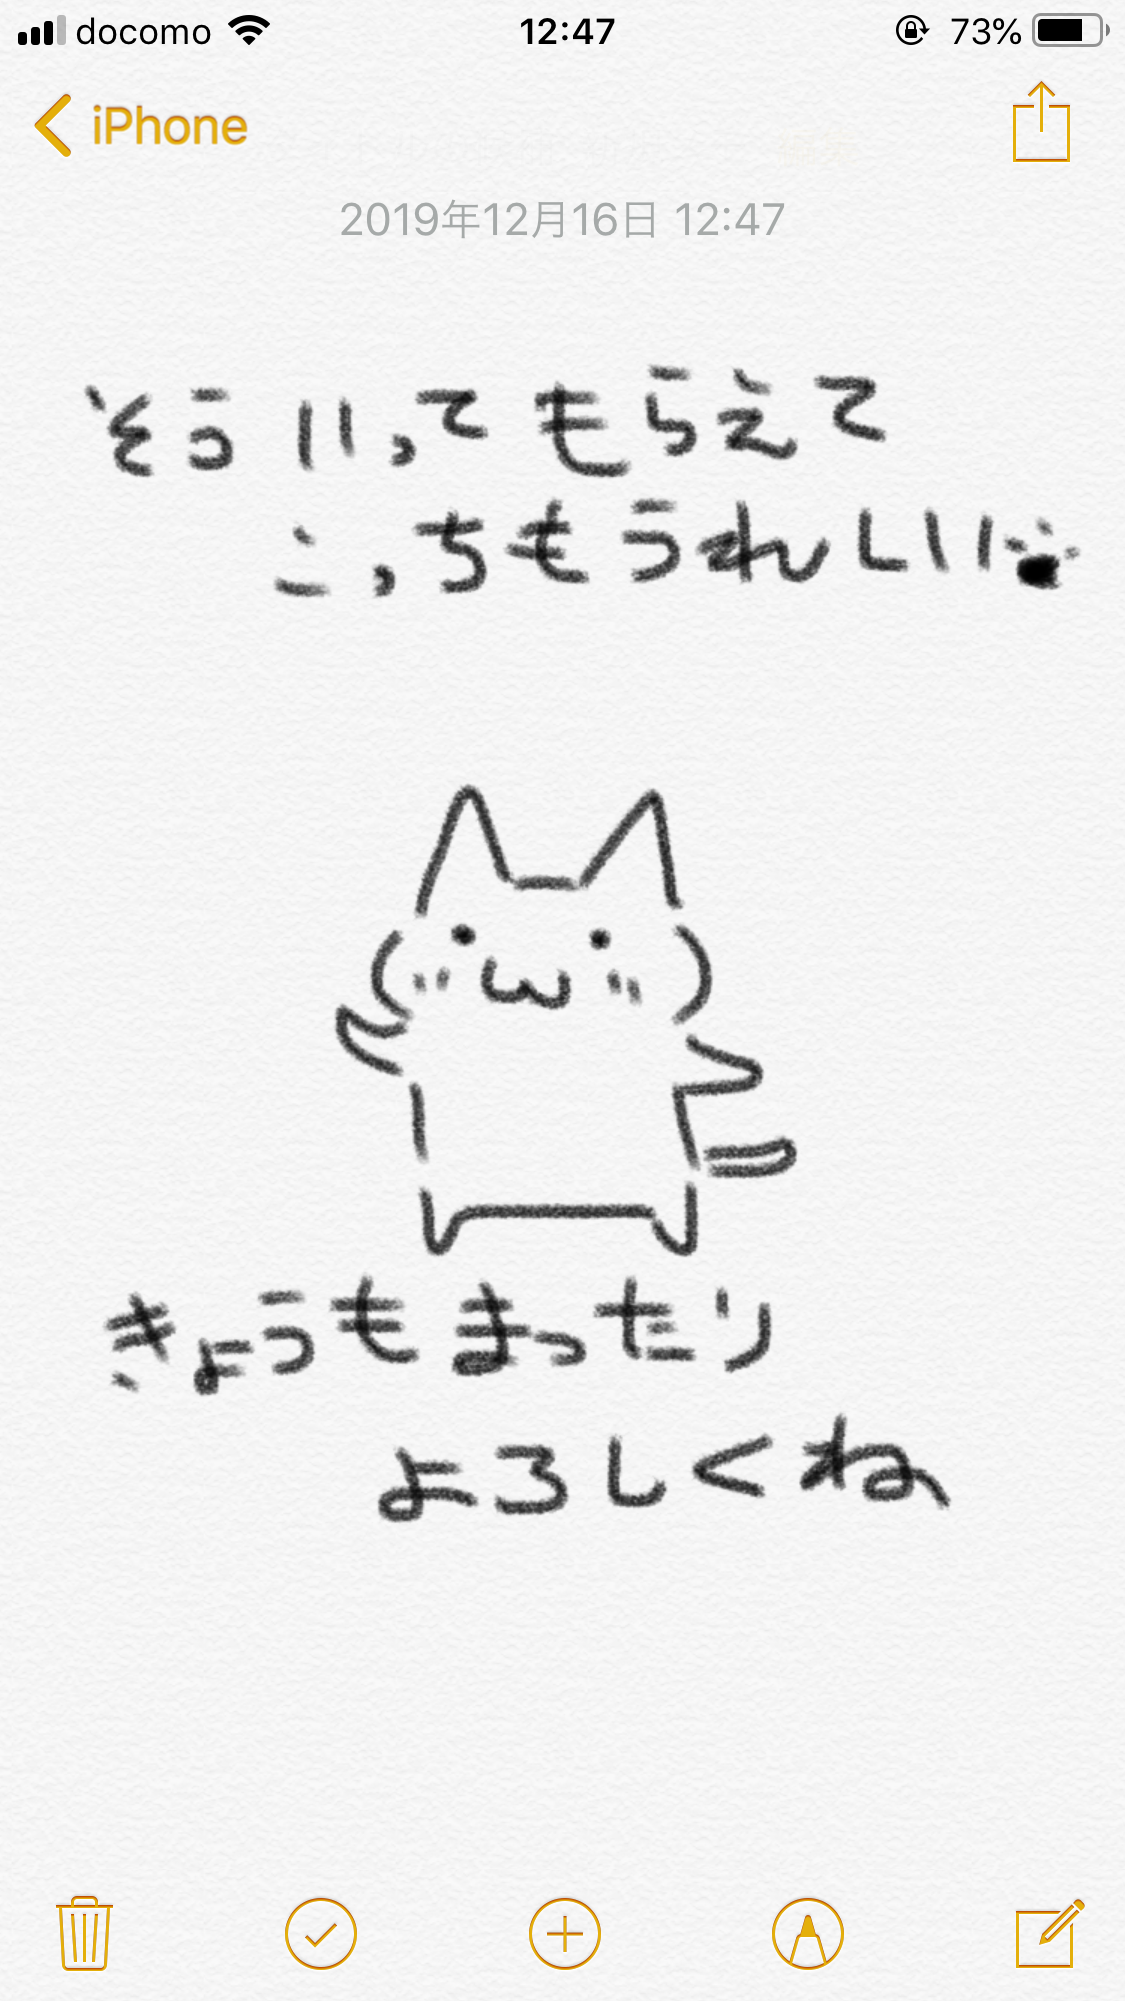 docomo 12:47 73%
iPhone
2019年12月16日 12:47
そういってもらえて
こっちもうれしい
きょうもまったり
よろしくね